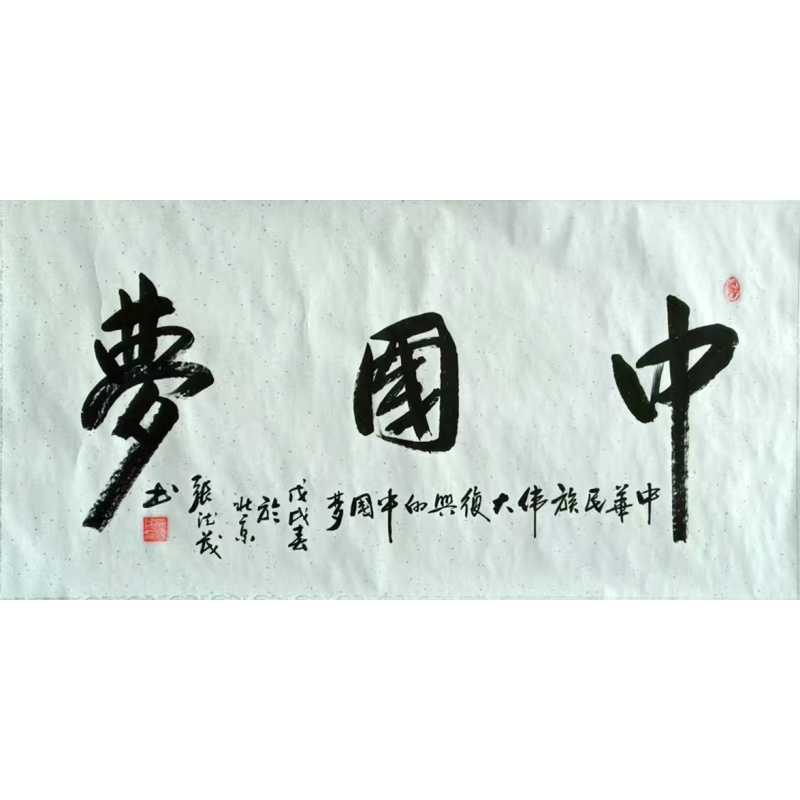 中國夢
中華民族偉大復興的中國夢
戊戌春
於
北京
張
書